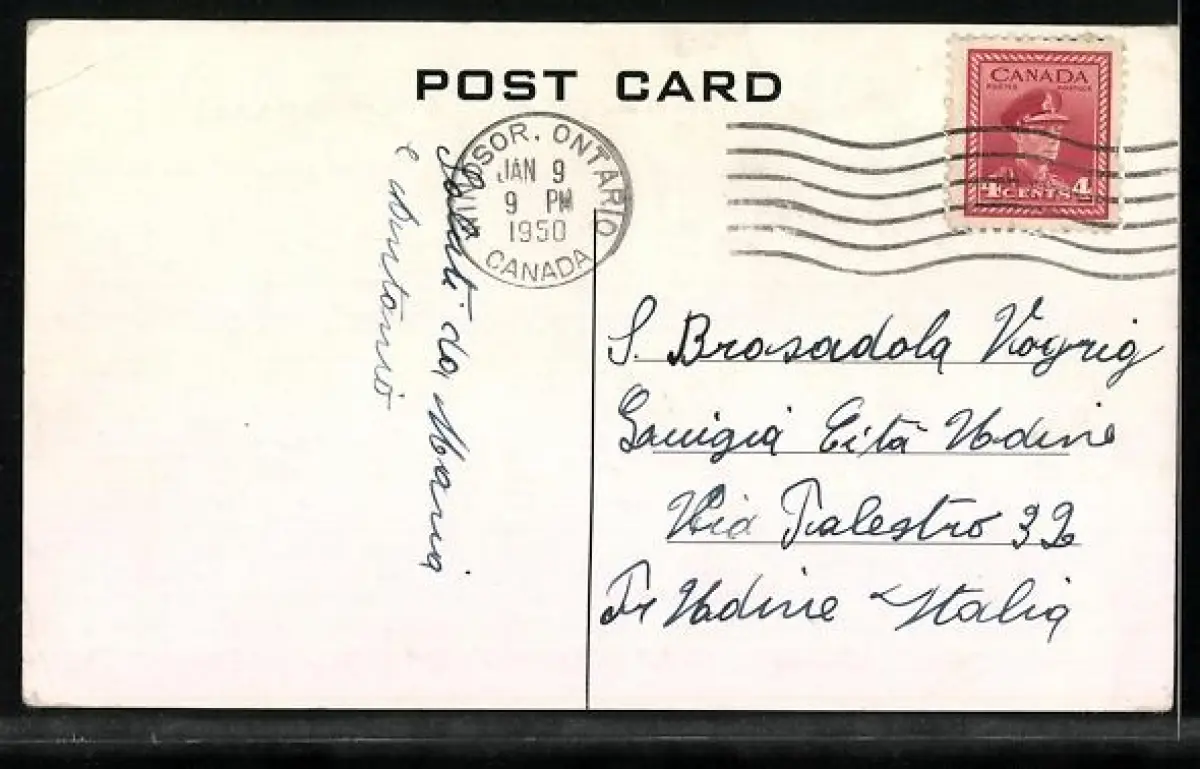 POST CARD
CANADA
POSTES POSTAGE
4 CENTS 4
WINDSOR, ONTARIO
JAN 9
9 PM
1950
CANADA
Saluti da Maria
e Antonio
S. Brosadola
Città Udine
Via Palestro 32
Udine Italia